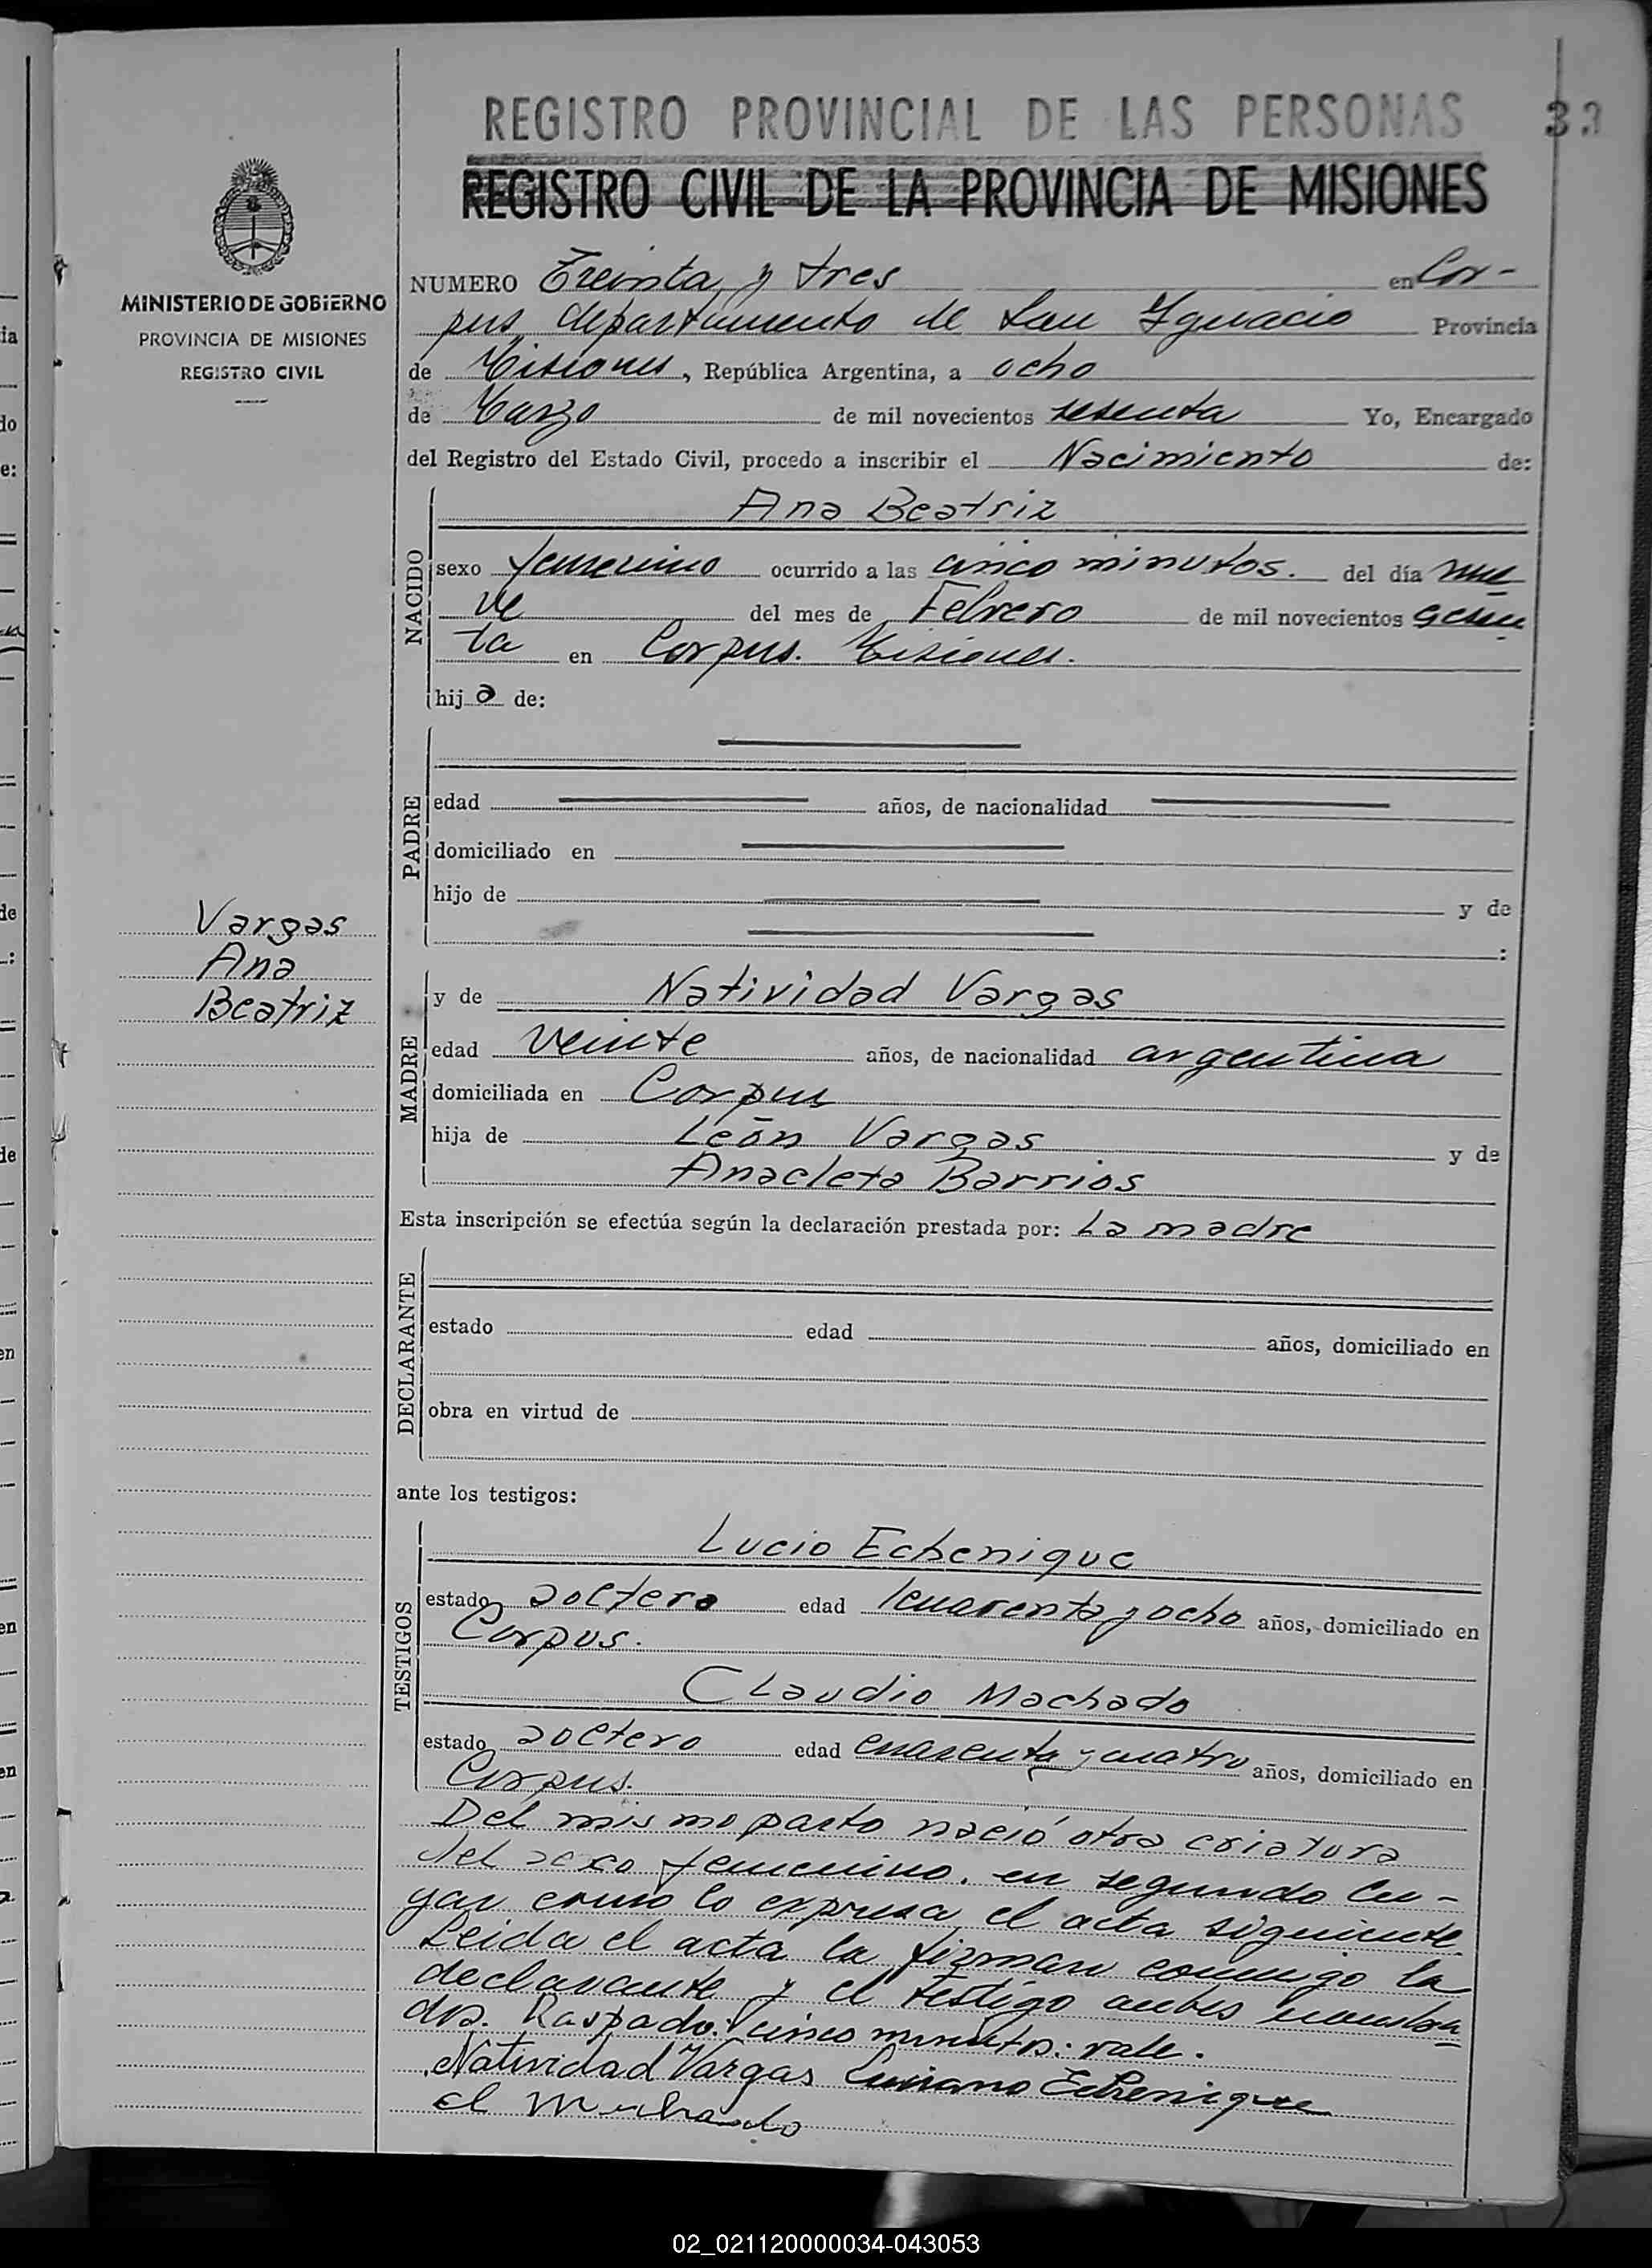 REGISTRO PROVINCIAL DE LAS PERSONAS 33
REGISTRO CIVIL DE LA PROVINCIA DE MISIONES
MINISTERIO DE GOBIERNO
PROVINCIA DE MISIONES
REGISTRO CIVIL
NUMERO Treinta y tres en Cor-
pus, departamento de San Ygnacio Provincia
de Misiones, República Argentina, a ocho
de Marzo de mil novecientos sesenta Yo, Encargado
del Registro del Estado Civil, procedo a inscribir el Nacimiento de:
NACIDO
Ana Beatriz
sexo femenino ocurrido a las cinco minutos. del día nue
ve del mes de Febrero de mil novecientos sesen
ta en Corpus. Misiones.
hija de:
PADRE
edad años, de nacionalidad
domiciliado en
hijo de y de
:
Vargas
Ana
Beatriz
MADRE
y de Natividad Vargas
edad veinte años, de nacionalidad argentina
domiciliada en Corpus
hija de León Vargas y de
Anacleta Barrios
Esta inscripción se efectúa según la declaración prestada por: La madre
DECLARANTE
estado edad años, domiciliado en
obra en virtud de
ante los testigos:
TESTIGOS
Lucio Echenique
estado soltero edad cuarenta y ocho años, domiciliado en
Corpus.
Claudio Machado
estado soltero edad cuarenta y cuatro años, domiciliado en
Corpus.
Del mismo parto nació otra criatura
del sexo femenino. en segundo lu-
gar como lo expresa el acta siguiente
Leida el acta la firman conmigo la
declarante y el testigo antes nombra
dos. Raspado: cinco minutos: vale.
Natividad Vargas Echenique
02_021120000034-043053